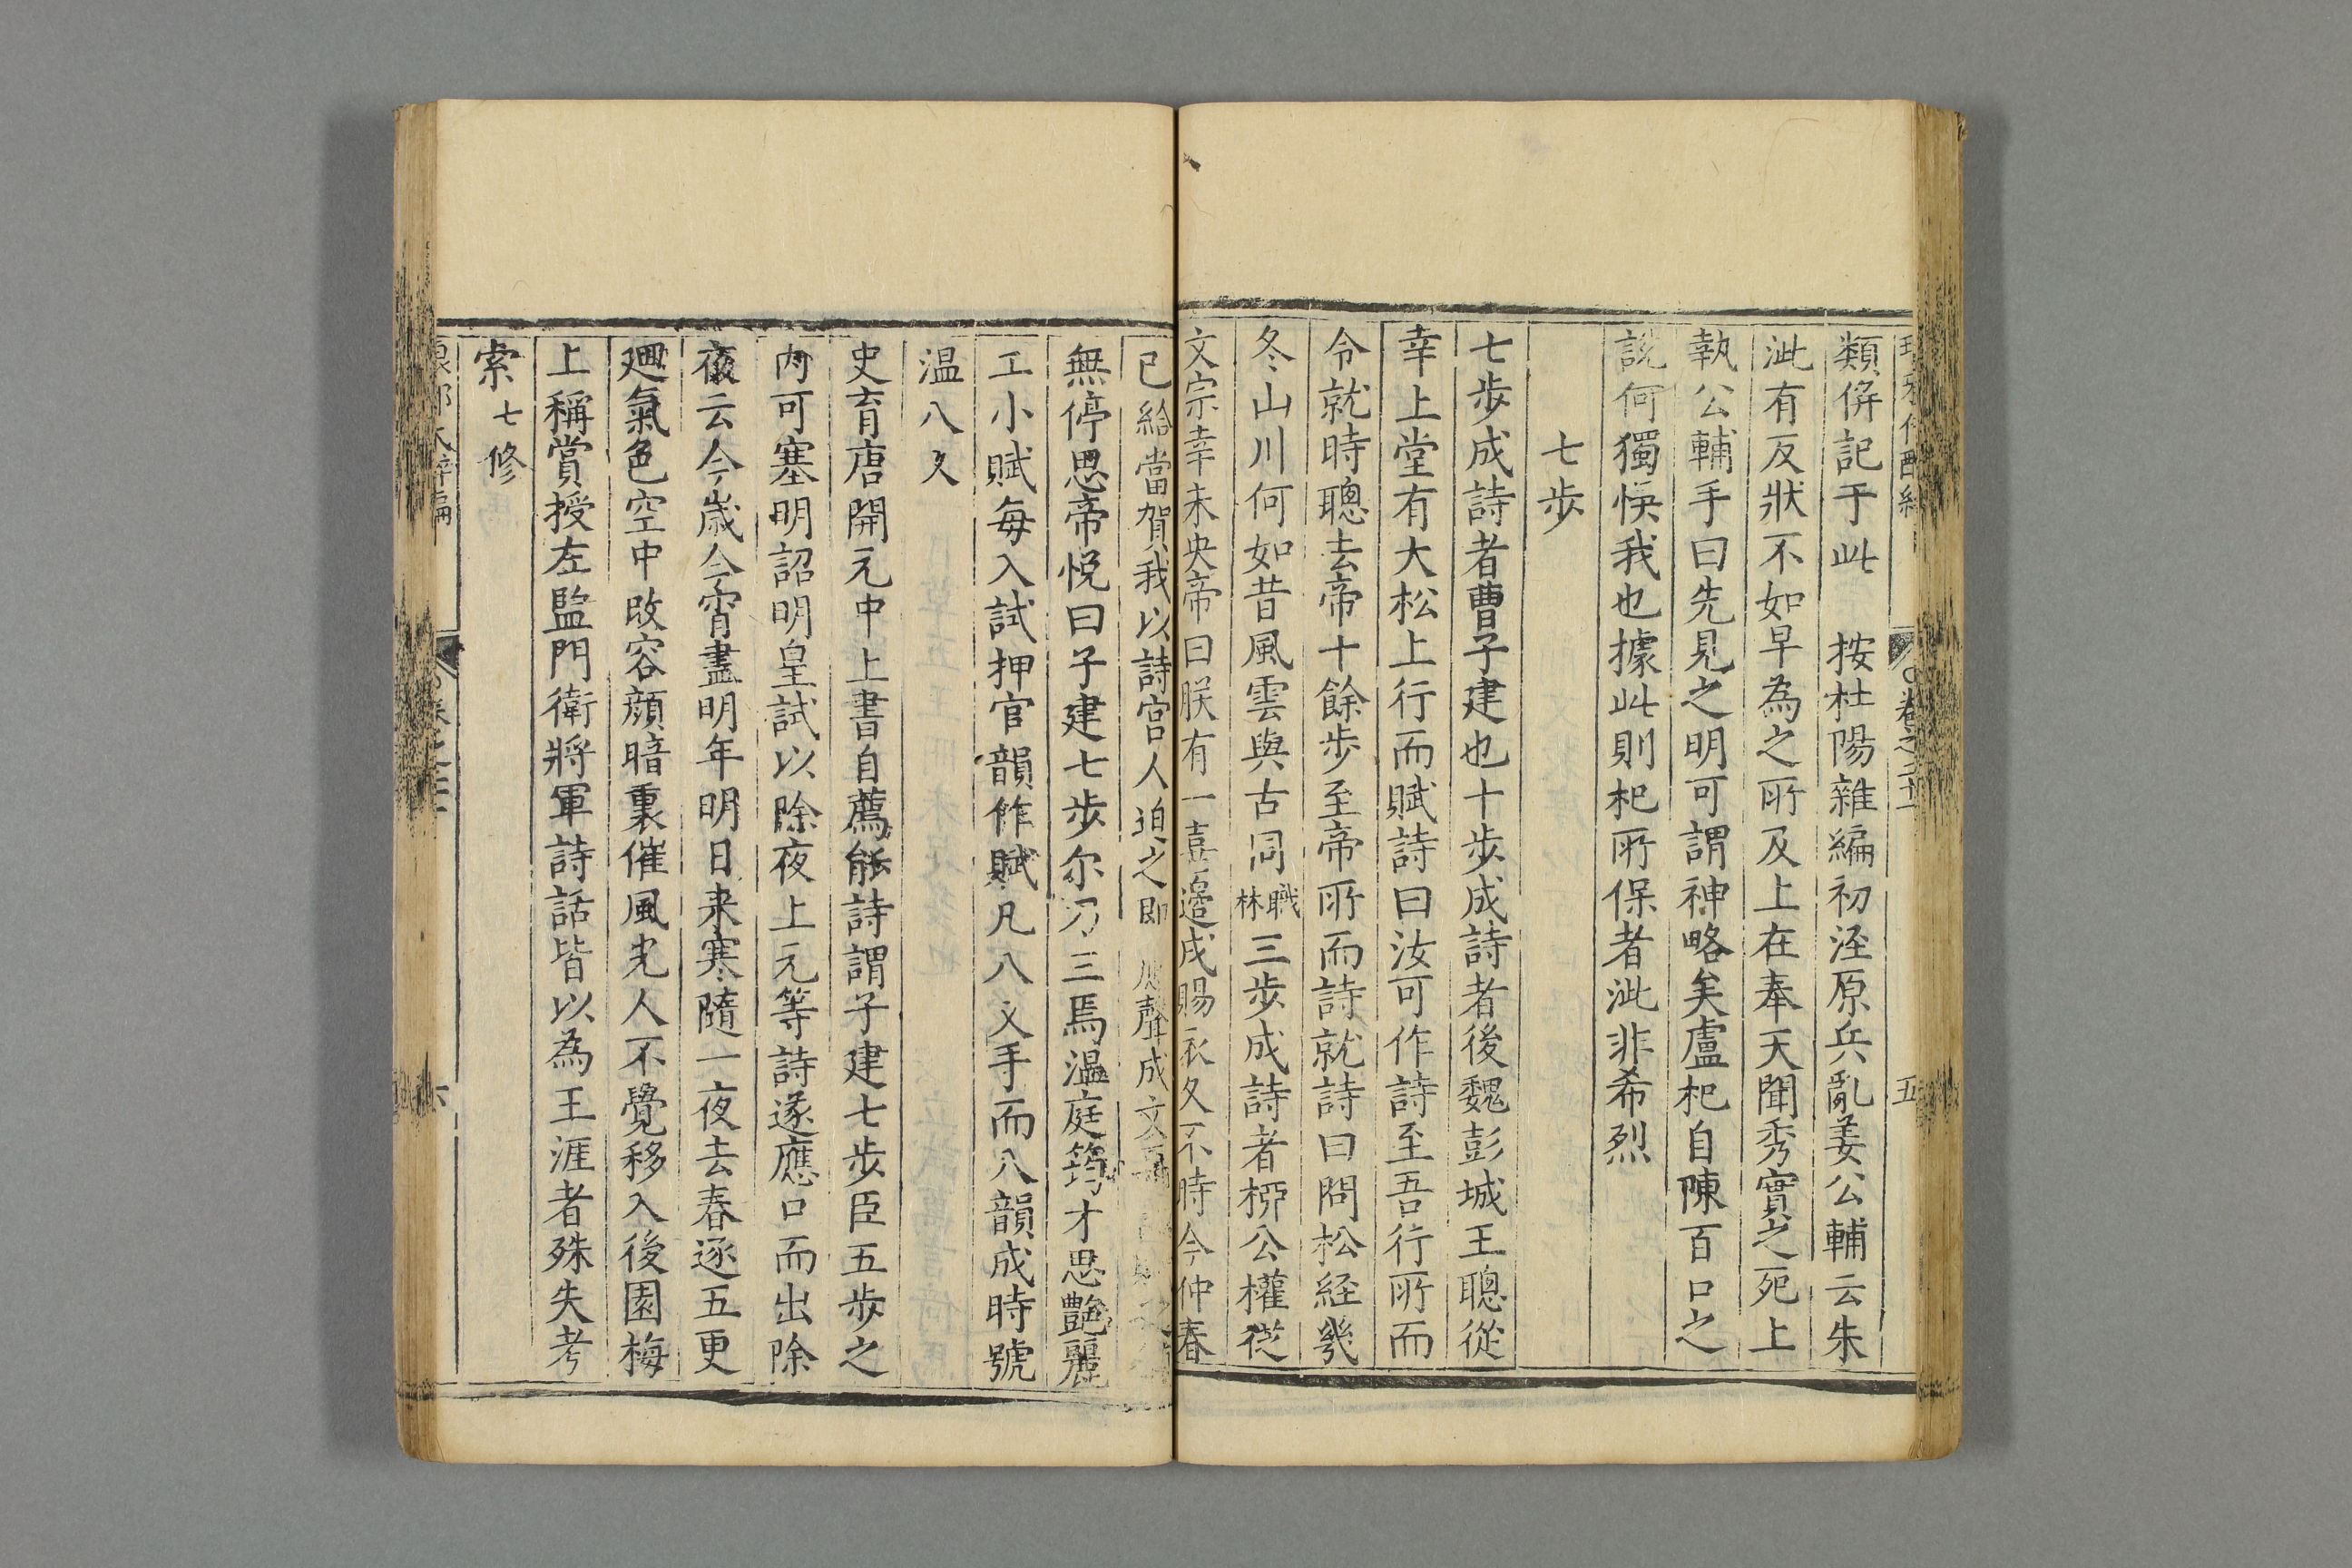 卷之二十
五
類併記于此　按杜陽雜編初涇原兵亂姜公輔云朱
泚有反狀不如早為之所及上在奉天聞秀實之死上
執公輔手曰先見之明可謂神略矣盧杞自陳百口之
說何獨悞我也據此則杞所保者泚非希烈
七步
七步成詩者曹子建也十步成詩者後魏彭城王聰從
幸上堂有大松上行而賦詩曰汝可作詩至吾行所而
令就時聰去帝十餘步至帝所而詩就詩曰問松経幾
冬山川何如昔風雲與古同職林三步成詩者栁公權從
文宗幸未央帝曰朕有一喜邉戍賜衣久不時今仲春
已給當賀我以詩宮人迫之即　聲成文
無停思帝悅曰子建七步尔乃三焉溫庭筠才思艶麗
工小賦每入試押官韻作賦凡八叉手而八韻成時號
温八叉
史育唐開元中上書自薦能詩謂子建七步臣五步之
內可塞明詔明皇試以除夜上元等詩遂應口而出除
夜云今歲今宵盡明年明日来寒隨一夜去春逐五更
廻氣色空中改容顔暗裏催風光人不覺移入後園梅
上稱賞授左監門衛將軍詩話皆以為王涯者殊失考
索七修
六